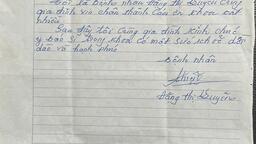 Tôi là bệnh nhân Đặng Thị Quyền Cùng
gia đình xin chân thành Cảm ơn khoa rất
nhiều
Sau đây tôi Cùng gia đình kính chúc
y bác sĩ trong khoa Có một Sức khoẻ dồi
dào và hạnh phúc
Bệnh nhân
Đặng Thị